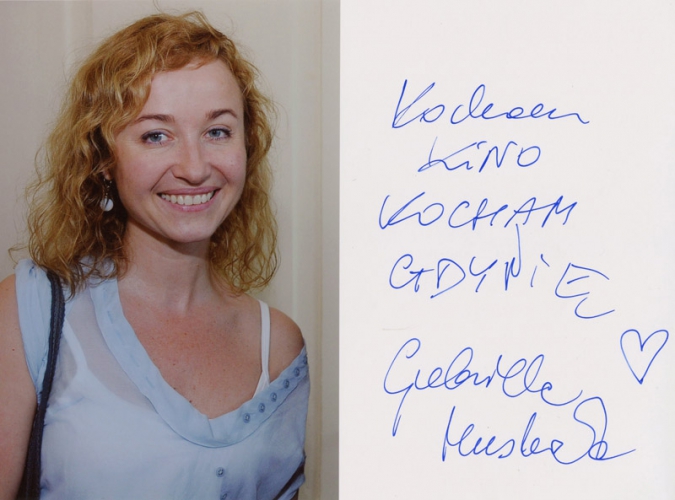 Kocham
KiNO
KOCHAM
GDYNiĘ
Gabriela
Muskała